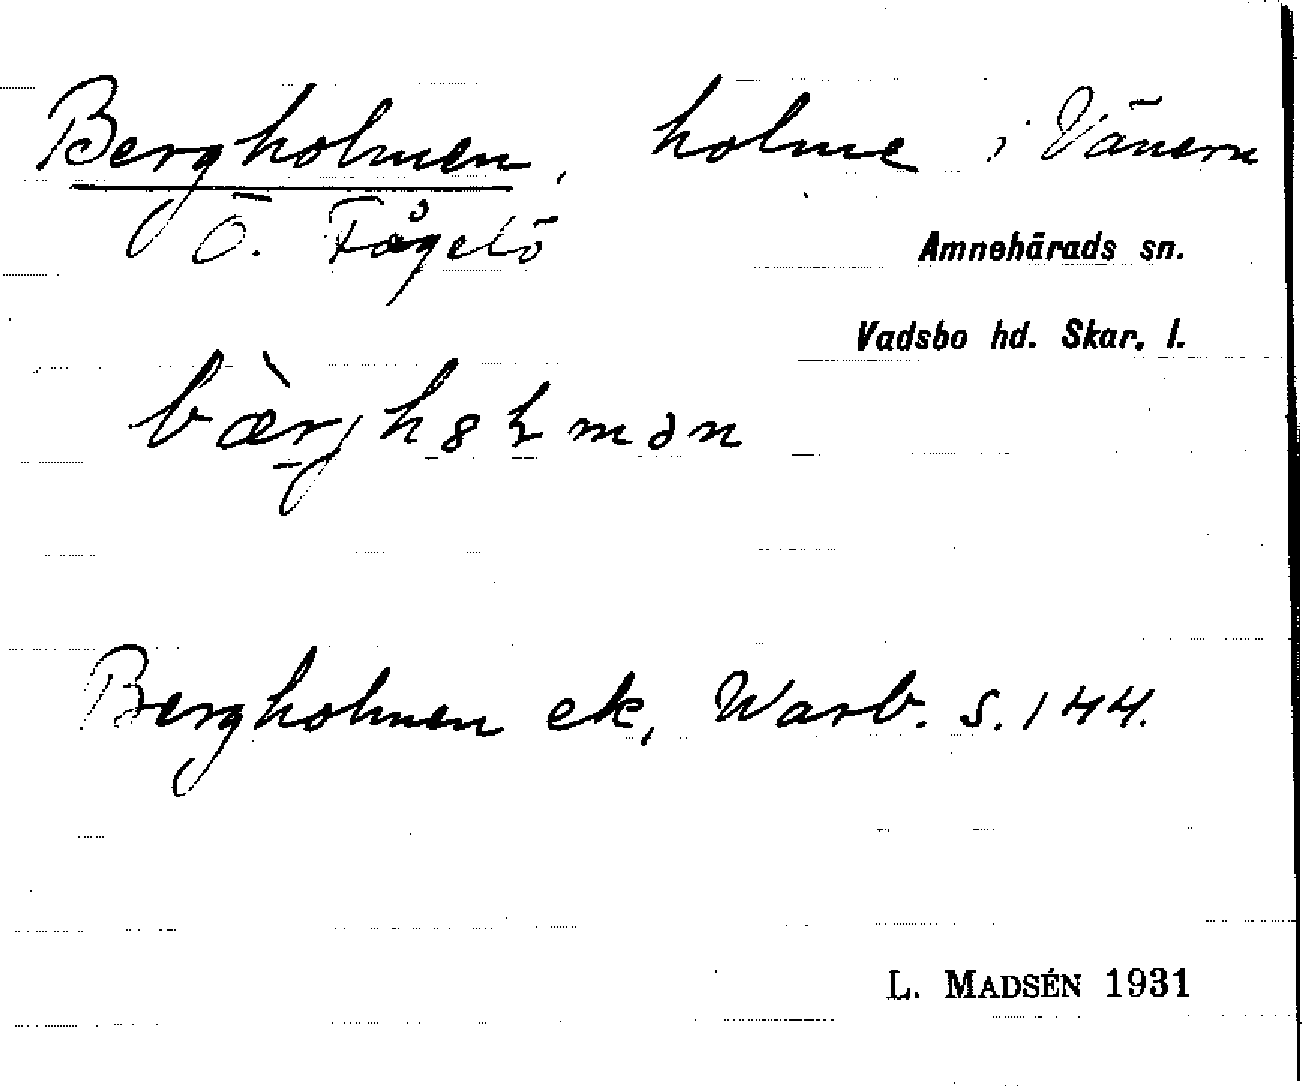 Bergholmen, holme i Vänern
Ö. Fågelö
Amnehärads sn.
Vadsbo hd. Skar. l.
Bergholmen ek, Warb. s. 144.
L. MADSÉN 1931